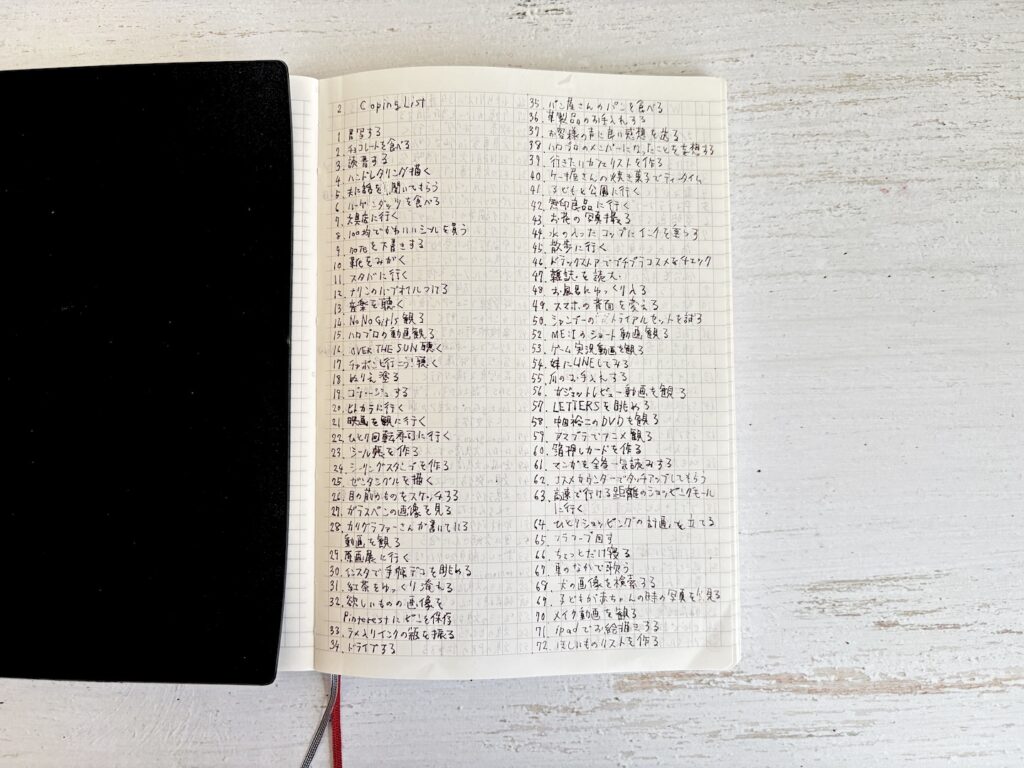 2 Coping List
1 書写する
2 チョコレートを食べる
3. 読書する
4 ハンドレタリング描く
5. 夫に話を聞いてもらう
6 ハーゲンダッツを食べる
7 文具店に行く
8 100均でかわいいシールを買う
9. noteを下書きする
10. 靴をみがく
11. スタバに行く
12. オイルつける
13. 音楽を聴く
14. No No Girls 観る
15. ハロプロの動画観る
16. OVER THE SUN 聴く
17. 行こう! 聴く
18. ぬりえ塗る
19. コラージュする
20. ヒトカラに行く
21. 映画を観に行く
22. ひとり回転寿司に行く
23. シール帳を作る
24. シーリングスタンプを作る
25. ゼンタングルを描く
26. 目の前のものをスケッチする
27. ガラスペンの画像を見る
28. カリグラファーさんが書いてにる
動画を観る
29. 原画展に行く
30. インスタで手帳デコを眺める
31. 紅茶をゆっくり淹える
32. 欲しいものの画像を
Pinterestにピンを保存
33. ラメ入りインクの瓶を振る
34. ドライブする
35. パン屋さんのパンを食べる
36. 革製品のお手入れする
37. お客様の声に良い感想を送る
38. ハロプロのメンバーになったことを妄想する
39. 行きたいカフェリストを作る
40. ケーキ屋さんの焼き菓子でティータイム
41. 子どもと公園に行く
42. 無印良品に行く
43. お花の写真撮る
44. 水の入ったコップにインクを垂らす
45. 散歩に行く
46. ドラッグストアでプチプラコスメをチェック
47. 雑誌を読む
48. お風呂にゆっくり入る
49. スマホの背面を変える
50. シャンプーのトライアルセットを試す
52. ME:Iのショート動画観る
53. ゲーム実況動画を観る
54. 妹にLINEしてみる
55. 爪のお手入れする
56. ガジェットレビュー動画を観る
57. LETTERSを眺める
58. 中田裕二のDVDを観る
59. アマプラでアニメ観る
60. 箔押しカードを作る
61. マンガを全巻一気読みする
62. コスメカウンターでタッチアップしてもらう
63. 高速で行ける距離のショッピングモール
に行く
64. ひとりショッピングの計画を立てる
65. フラフープ回す
66. ちょっとだけ寝る
67. 車のなかで歌う
68. 犬の画像を検索する
69. 子どもが赤ちゃんの時の写真を見る
70. メイク動画を観る
71. ipadでお絵描きする
72. ほしいものリストを作る